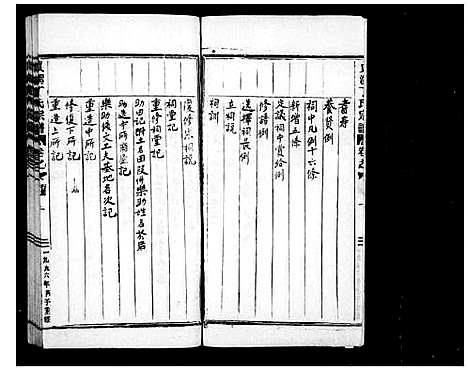 書壽
養賢例
祠中凡例十六條
新增五條
定議祠中賞給例
修譜例
選擇祠長例
立祠說
祠訓
復修宗祠記
祠堂記
重修祠堂記
助田記附土名田段併樂助姓名於后
助造寸所
樂助後文工夫基地名次記
重造中所記
修復下所記
重造上所記
一九九六年丙子重修